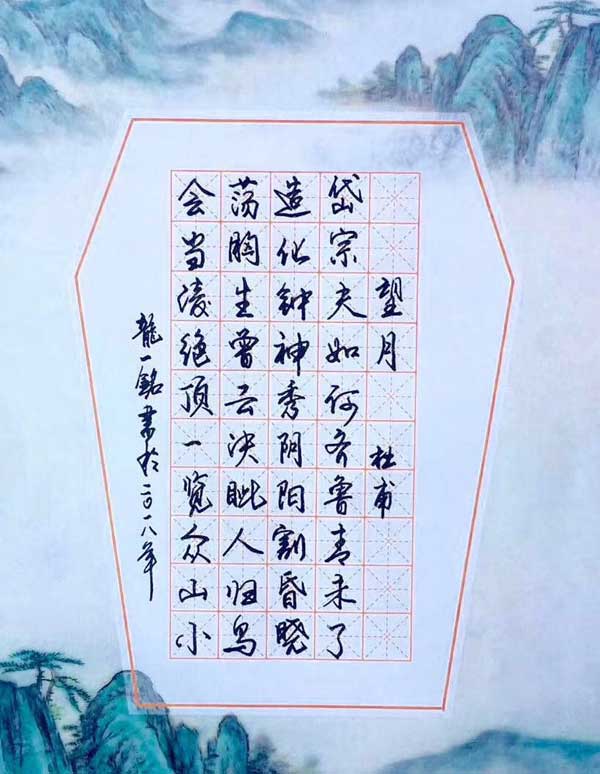 望月 杜甫
岱宗夫如何齐鲁青未了
造化钟神秀阴阳割昏晓
荡胸生曾云决眦人归鸟
会当凌绝顶一览众山小
龍一銘书於二〇一八年